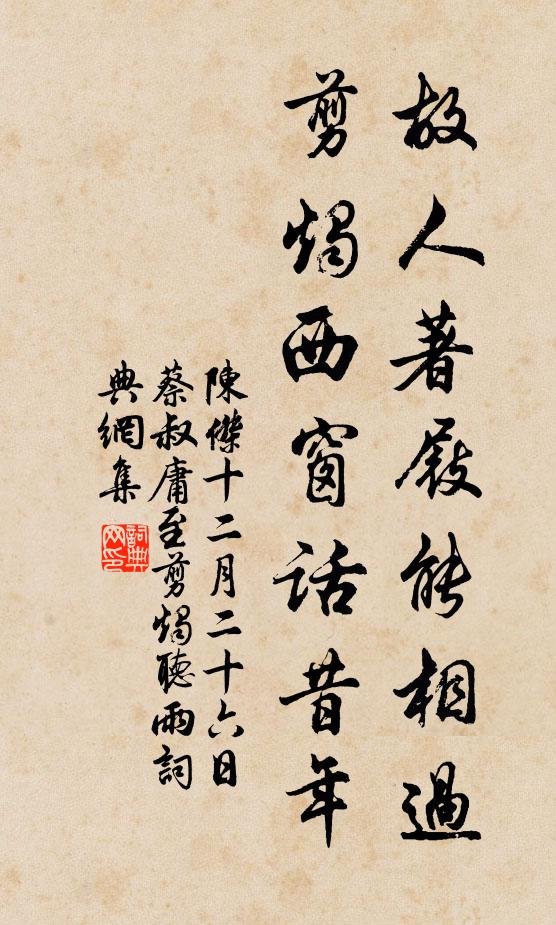 故人著屐能相過
剪燭西窗話昔年
陳傑十二月二十六日
蔡叔庸至剪燭聽雨詞
典網集
詞典
网印